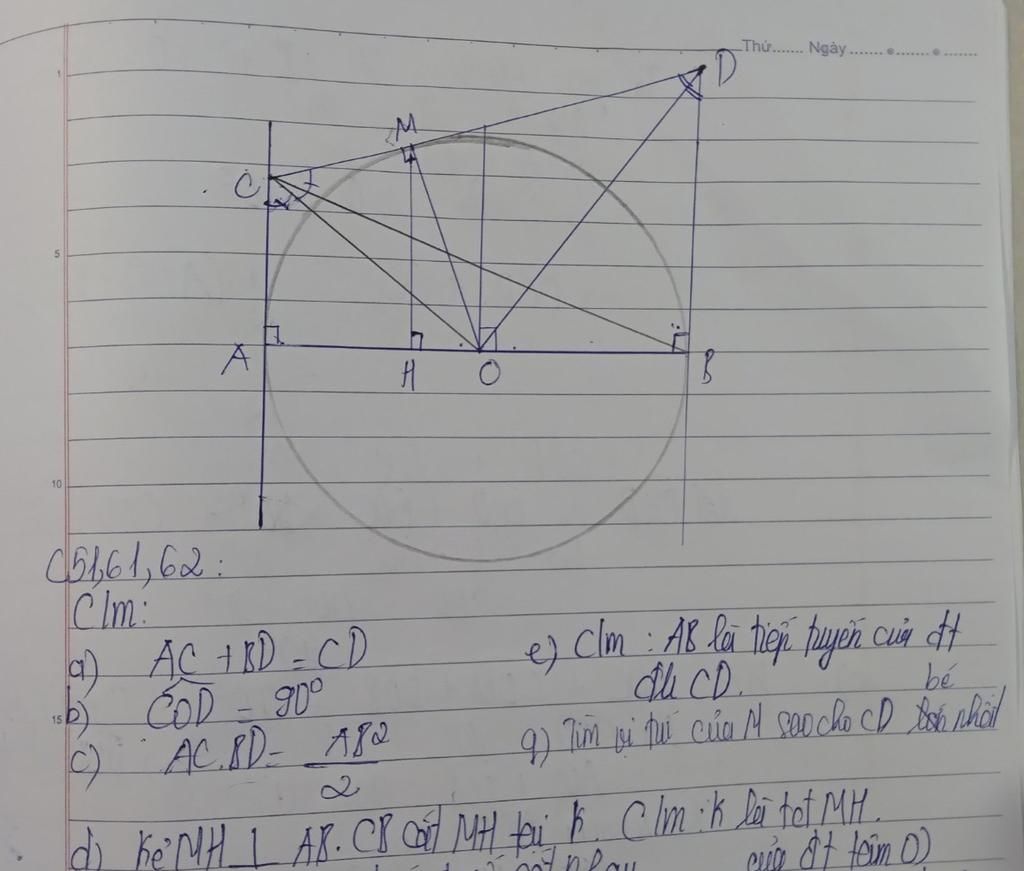 Thứ....... Ngày ....... ●....... ● .......
D
M
C
1
5
A
H
O
B
10
C51,61,62:
C/m:
a) AC + BD = CD
b) COD = 90°
c) AC.BD = AB2
2
e) C/m : AB là tiếp tuyến của đt
đk CD.
bé
g) Tìm vị trí của M sao cho CD nhất
15
d) Kẻ MH ⊥ AB. CB cắt MH tại K. C/m : K là tđt MH.
của đt tâm O)